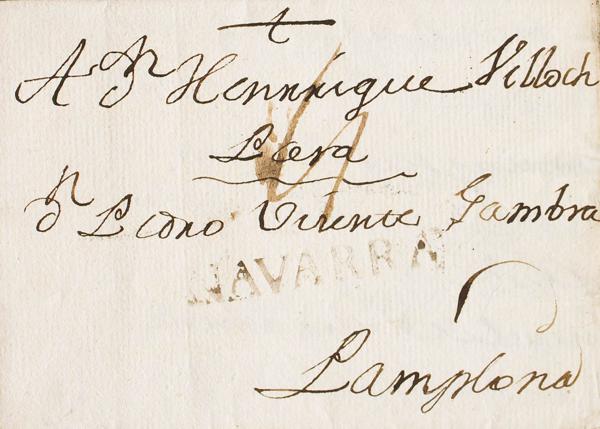 A Dn Henrrique Villoch
Pera
Dn Pedro Vicente Gambra
NAVARRA
Pamplona